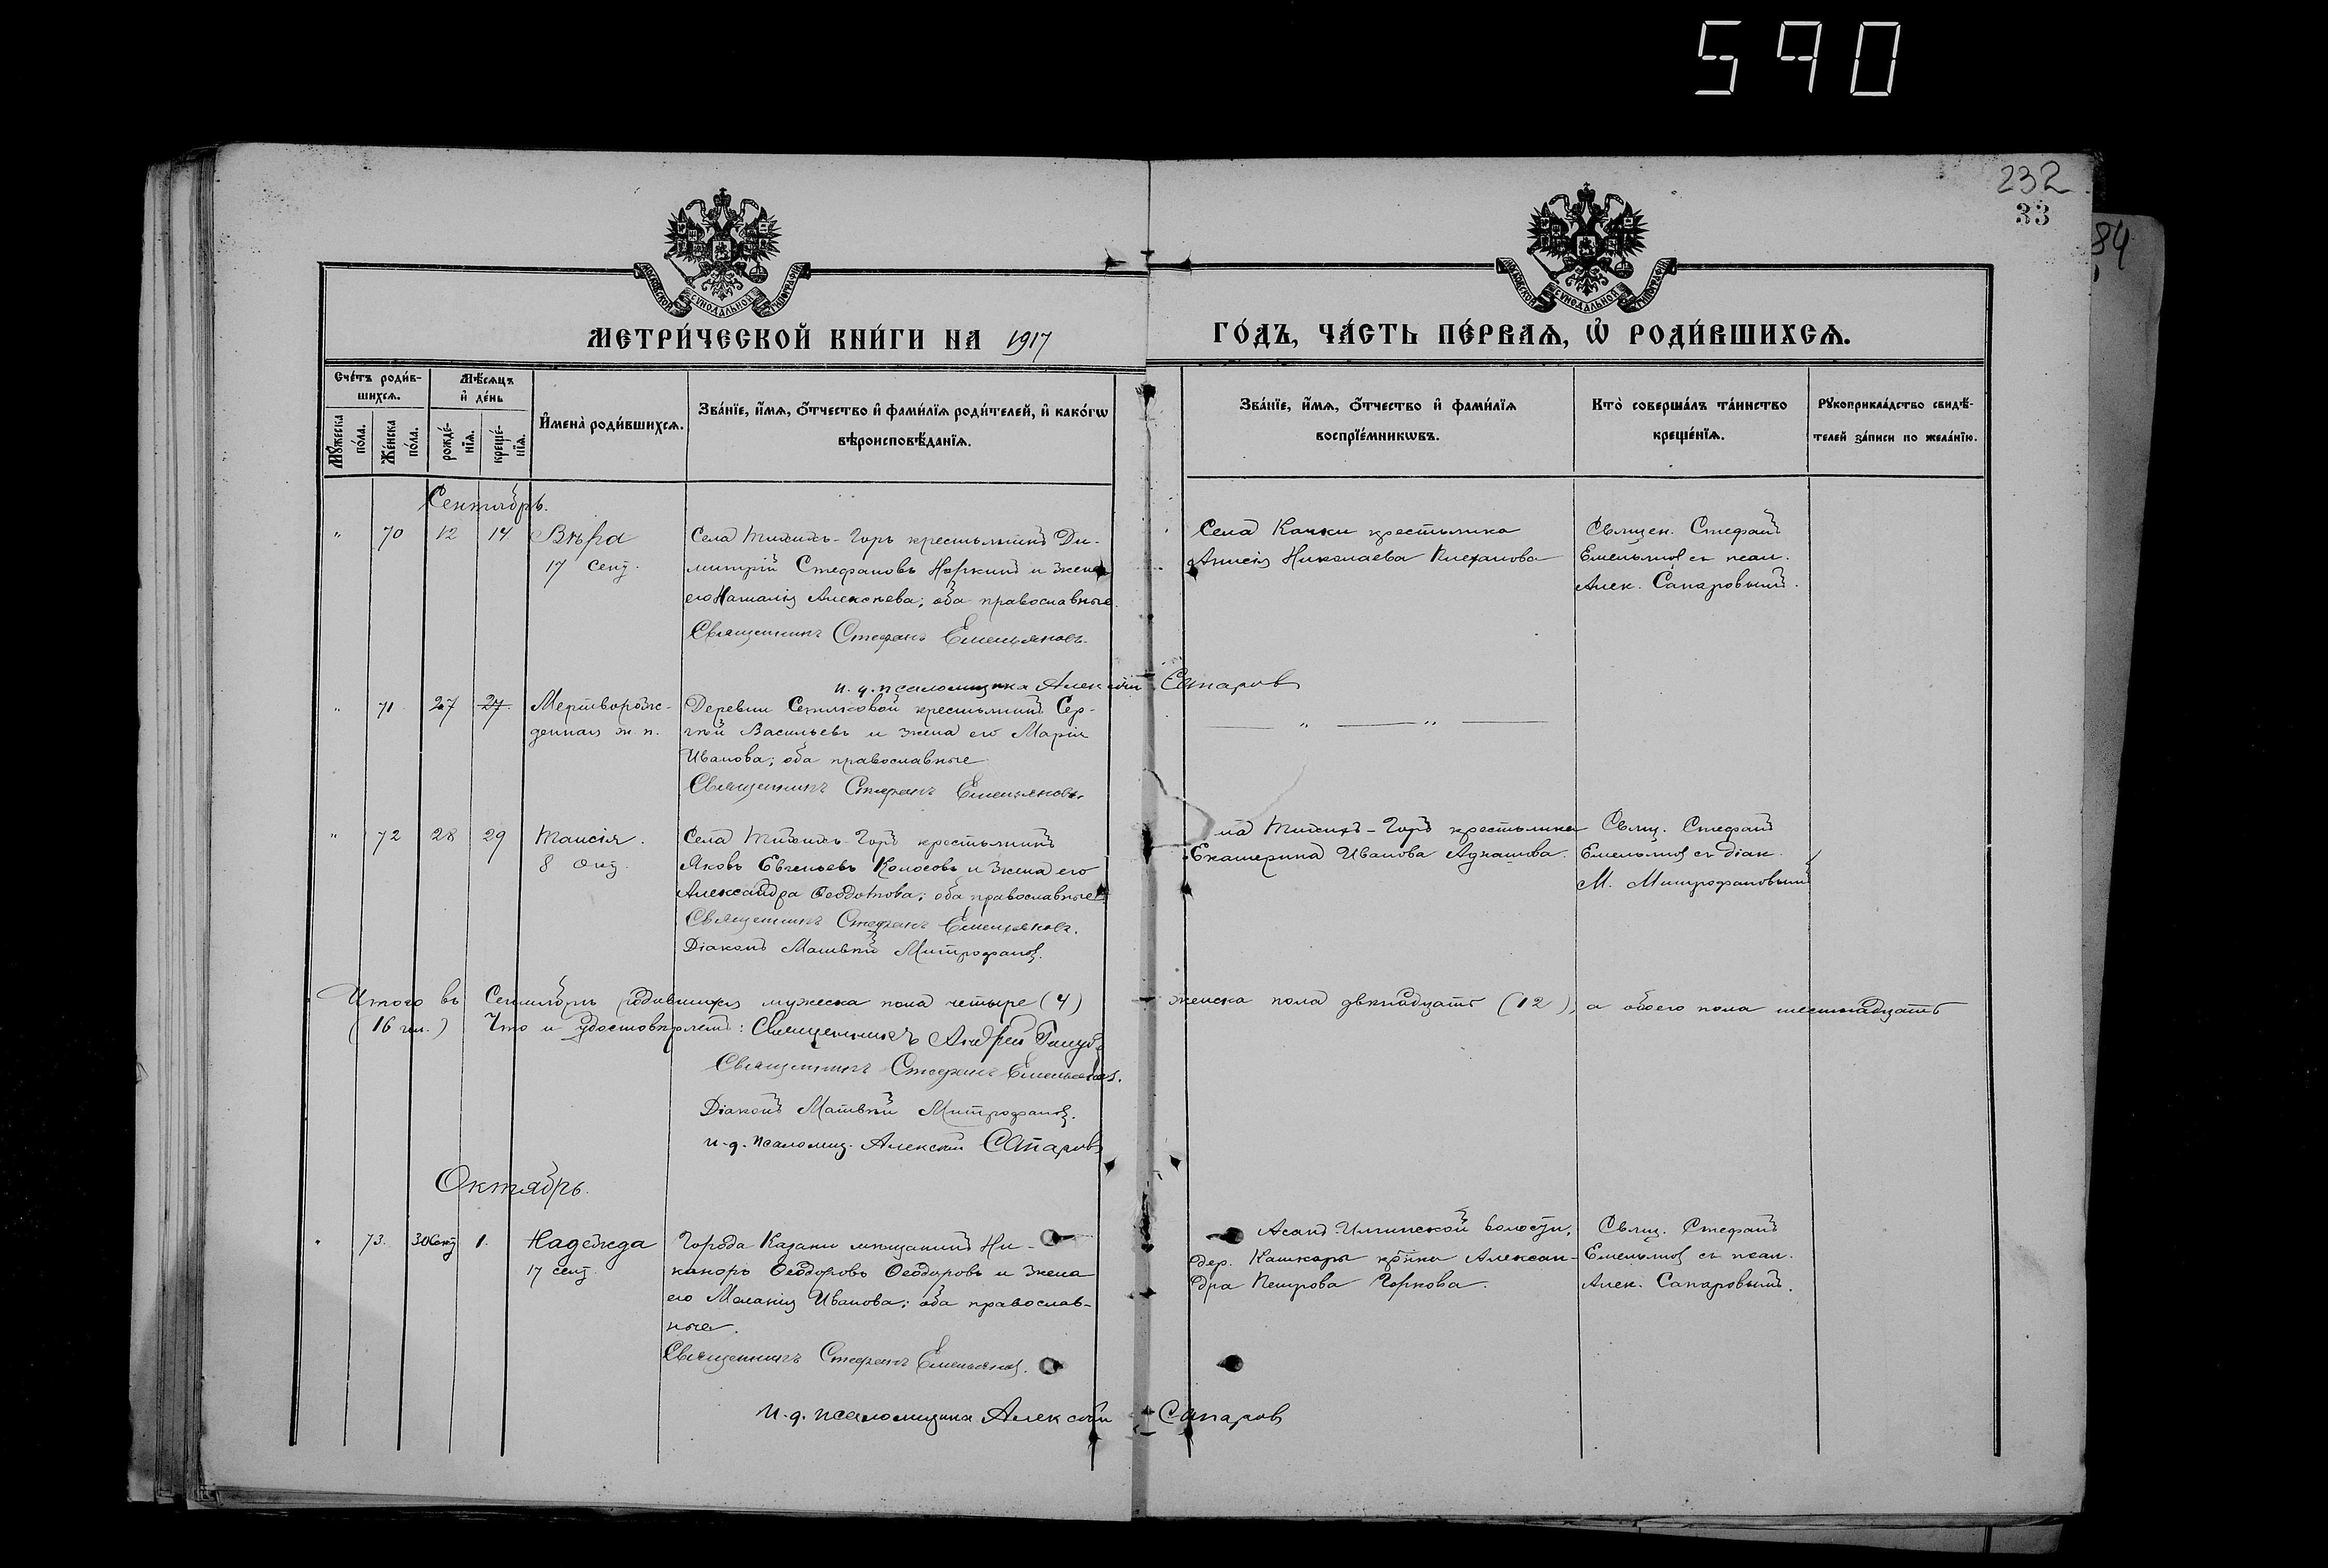 590
232
33
84
МОСКОВСКОЙ СѴНОДАЛЬНОЙ ТИПОГРАФІИ
МОСКОВСКОЙ СѴНОДАЛЬНОЙ ТИПОГРАФІИ
МЕТРИ́ЧЕСКОЙ КНИ́ГИ НА 1917
ГО́ДЪ, ЧА́СТЬ ПЕ́РВАѦ, Ѽ РОДИ́ВШИХСѦ.
Сче́тъ роди́в-
шихсѧ.
Мѣ́сѧцъ
и҆ де́нь
Мꙋ́жеска
по́ла.
Же́нска
по́ла.
рожде́-
нїѧ.
креще́-
нїѧ.
И҆мена̀ роди́вшихсѧ.
Зва́нїе, и҆́мѧ, ѻ҆́тчество и҆ фами́лїѧ роди́телей, и҆ како́гѡ
вѣроисповѣ́данїѧ.
Зва́нїе, и҆́мѧ, ѻ҆́тчество и҆ фами́лїѧ
воспрїе́мникѡвъ.
Кто̀ соверша́лъ та́инство
креще́нїѧ.
Рꙋкоприкла́дство свидѣ́-
телей за́писи по жела́нїю.
Сентябрь.
" 70 12 14 Вѣра
17 сент.
Села Тихихъ-Горъ крестьянинъ Ди-
митрій Стефановъ Норкинъ и жена
его Наталія Алексѣева; оба православные.
Священникъ Стефанъ Емельяновъ.
и. д. псаломщика Алексѣй Сапаровъ
Села Качки крестьянка
Анисія Николаева Плеханова
Священ. Стефанъ
Емельяновъ съ псал.
Алек. Сапаровымъ.
" 71 27 27. Мертворож-
денная ж. п.
Деревни Сетяковой крестьянинъ Сер-
гѣй Васильевъ и жена его Марія
Иванова; оба православные
Священникъ Стефанъ Емельяновъ.
" "
" 72 28 29 Таисія.
8 окт.
Села Тихихъ-Горъ крестьянинъ
Яковъ Евгеньевъ Колосовъ и жена его
Александра Ѳеодотова; оба православные
Священникъ Стефанъ Емельяновъ.
Діаконъ Матвѣй Митрофановъ.
ла Тихихъ-Горъ крестьянка
Екатерина Иванова
Свящ. Стефанъ
Емельяновъ съ діак.
М. Митрофановымъ
Итого въ Сентябрѣ родившихся мужеска пола четыре (4) женска пола двѣнадцать (12), а обоего пола шестнадцать
(16 чл.) Что и удостовѣряемъ: Священникъ Андрей
Священникъ Стефанъ Емельяновъ.
Діаконъ Матвѣй Митрофановъ.
и. д. псаломщ. Алексѣй Сапаровъ
Октябрь.
" 73. 30 Сент 1. Надежда
17 сент.
Города Казани мѣщанинъ Ни-
каноръ Ѳеодоровъ Ѳеодоровъ и жена
его Меланія Иванова; оба православ-
ные.
Священникъ Стефанъ Емельяновъ.
и. д. псаломщика Алексѣй Сапаровъ
Асанъ-Илгинской волости,
дер. Кашкары кр-нка Алексан-
дра Петрова Горкова.
Свящ. Стефанъ
Емельяновъ съ псал.
Алек. Сапаровымъ.